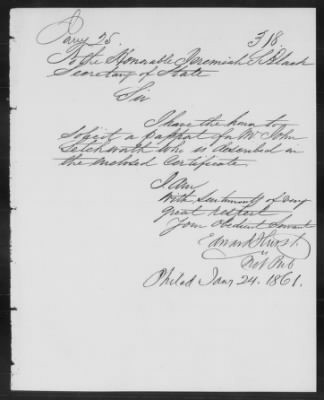 Jany 25. 318.
To the Honourable Jeremiah S. Black
Secretary of State
Sir
I have the honor to
solicit a passport for Mr John
Letchworth who is described in
the enclosed Certificate
I Am
With Sentiments of very
great respect
Your Obedient Servant
Edward Hurst
Not Pub
Philad Jany 24. 1861.